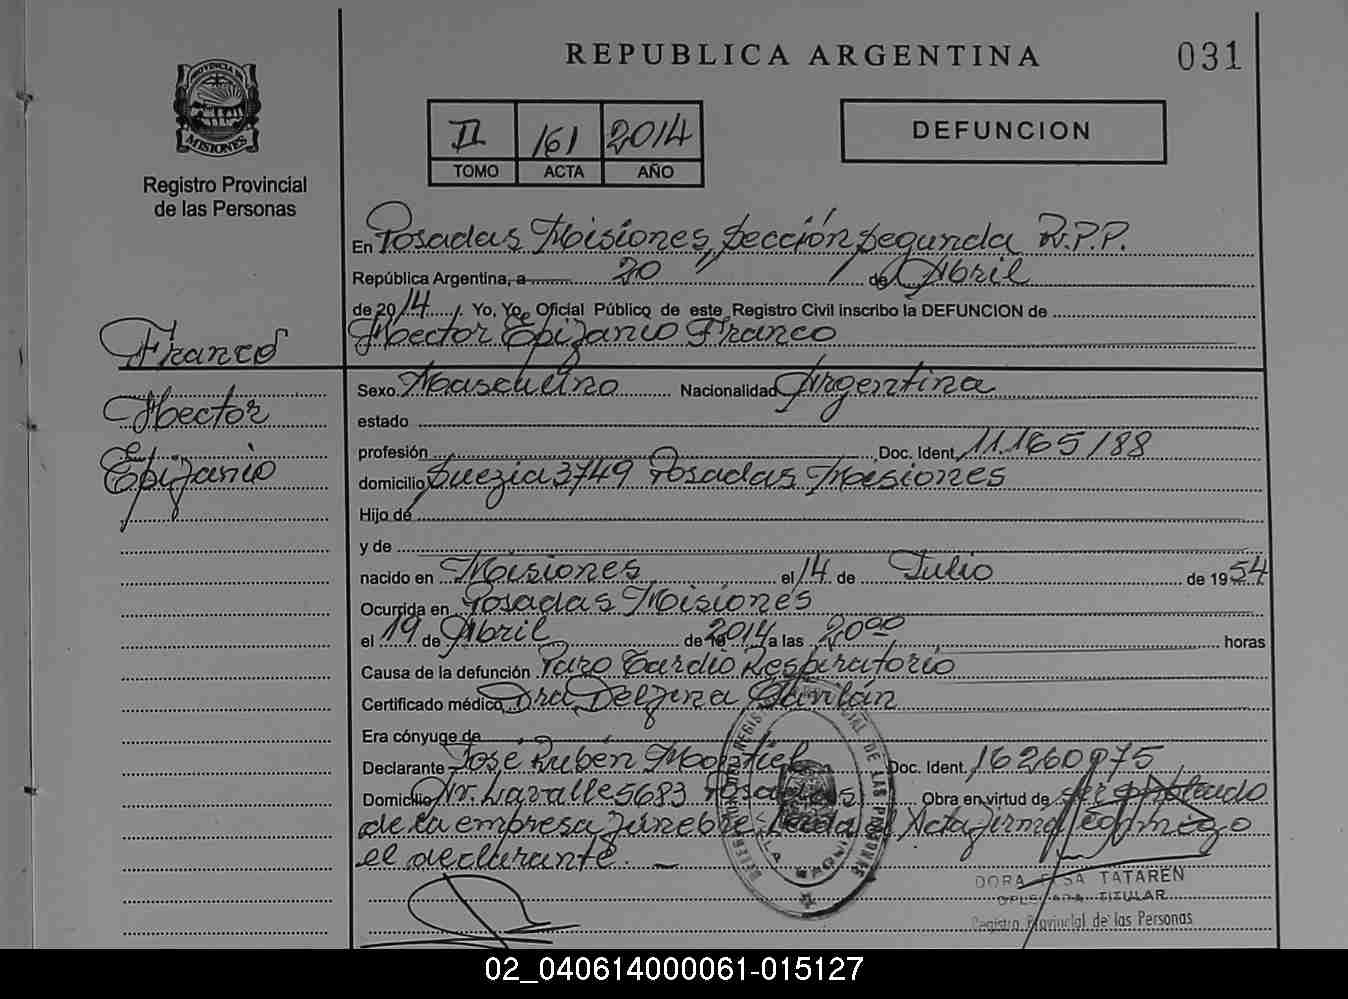 REPUBLICA ARGENTINA
031
PROVINCIA DE
MISIONES
Registro Provincial
de las Personas
II 161 2014
TOMO ACTA AÑO
DEFUNCION
En Posadas Misiones, Sección Segunda R.P.P.
República Argentina, a 20 de Abril
de 2014 Yo, Yo, Oficial Público de este Registro Civil inscribo la DEFUNCION de
Hector Epifanio Franco
Franco
Hector
Epifanio
Sexo Masculino Nacionalidad Argentina
estado
profesión Doc. Ident. 11.165.188
domicilio Suezia 3749 Posadas Misiones
Hijo de
y de
nacido en Misiones el 14 de Julio de 1954
Ocurrida en Posadas Misiones
el 19 de Abril de 2014 a las 20 00 horas
Causa de la defunción Paro Cardio Respiratorio
Certificado médico Dra. Delfina Gavilán
Era cónyuge de
Declarante José Rubén Montiel Doc. Ident. 16260975
Domicilio Av. Lavalle 5683 Posadas Obra en virtud de ser empleado
de la empresa fúnebre Leida el Acta firma conmigo
el declarante.
DORA ELSA TATAREN
DELEGADA TITULAR
Registro Provincial de las Personas
02_040614000061-015127